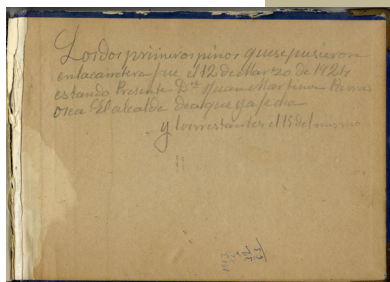 Los dos primeros pinos quesepusieron
enlacantera fue el 12 de Marzo de 1924
estando Presente Dn Juan Martinez
osea El alcalde deaquella fecha
y losrrestantes el 15 del mismo